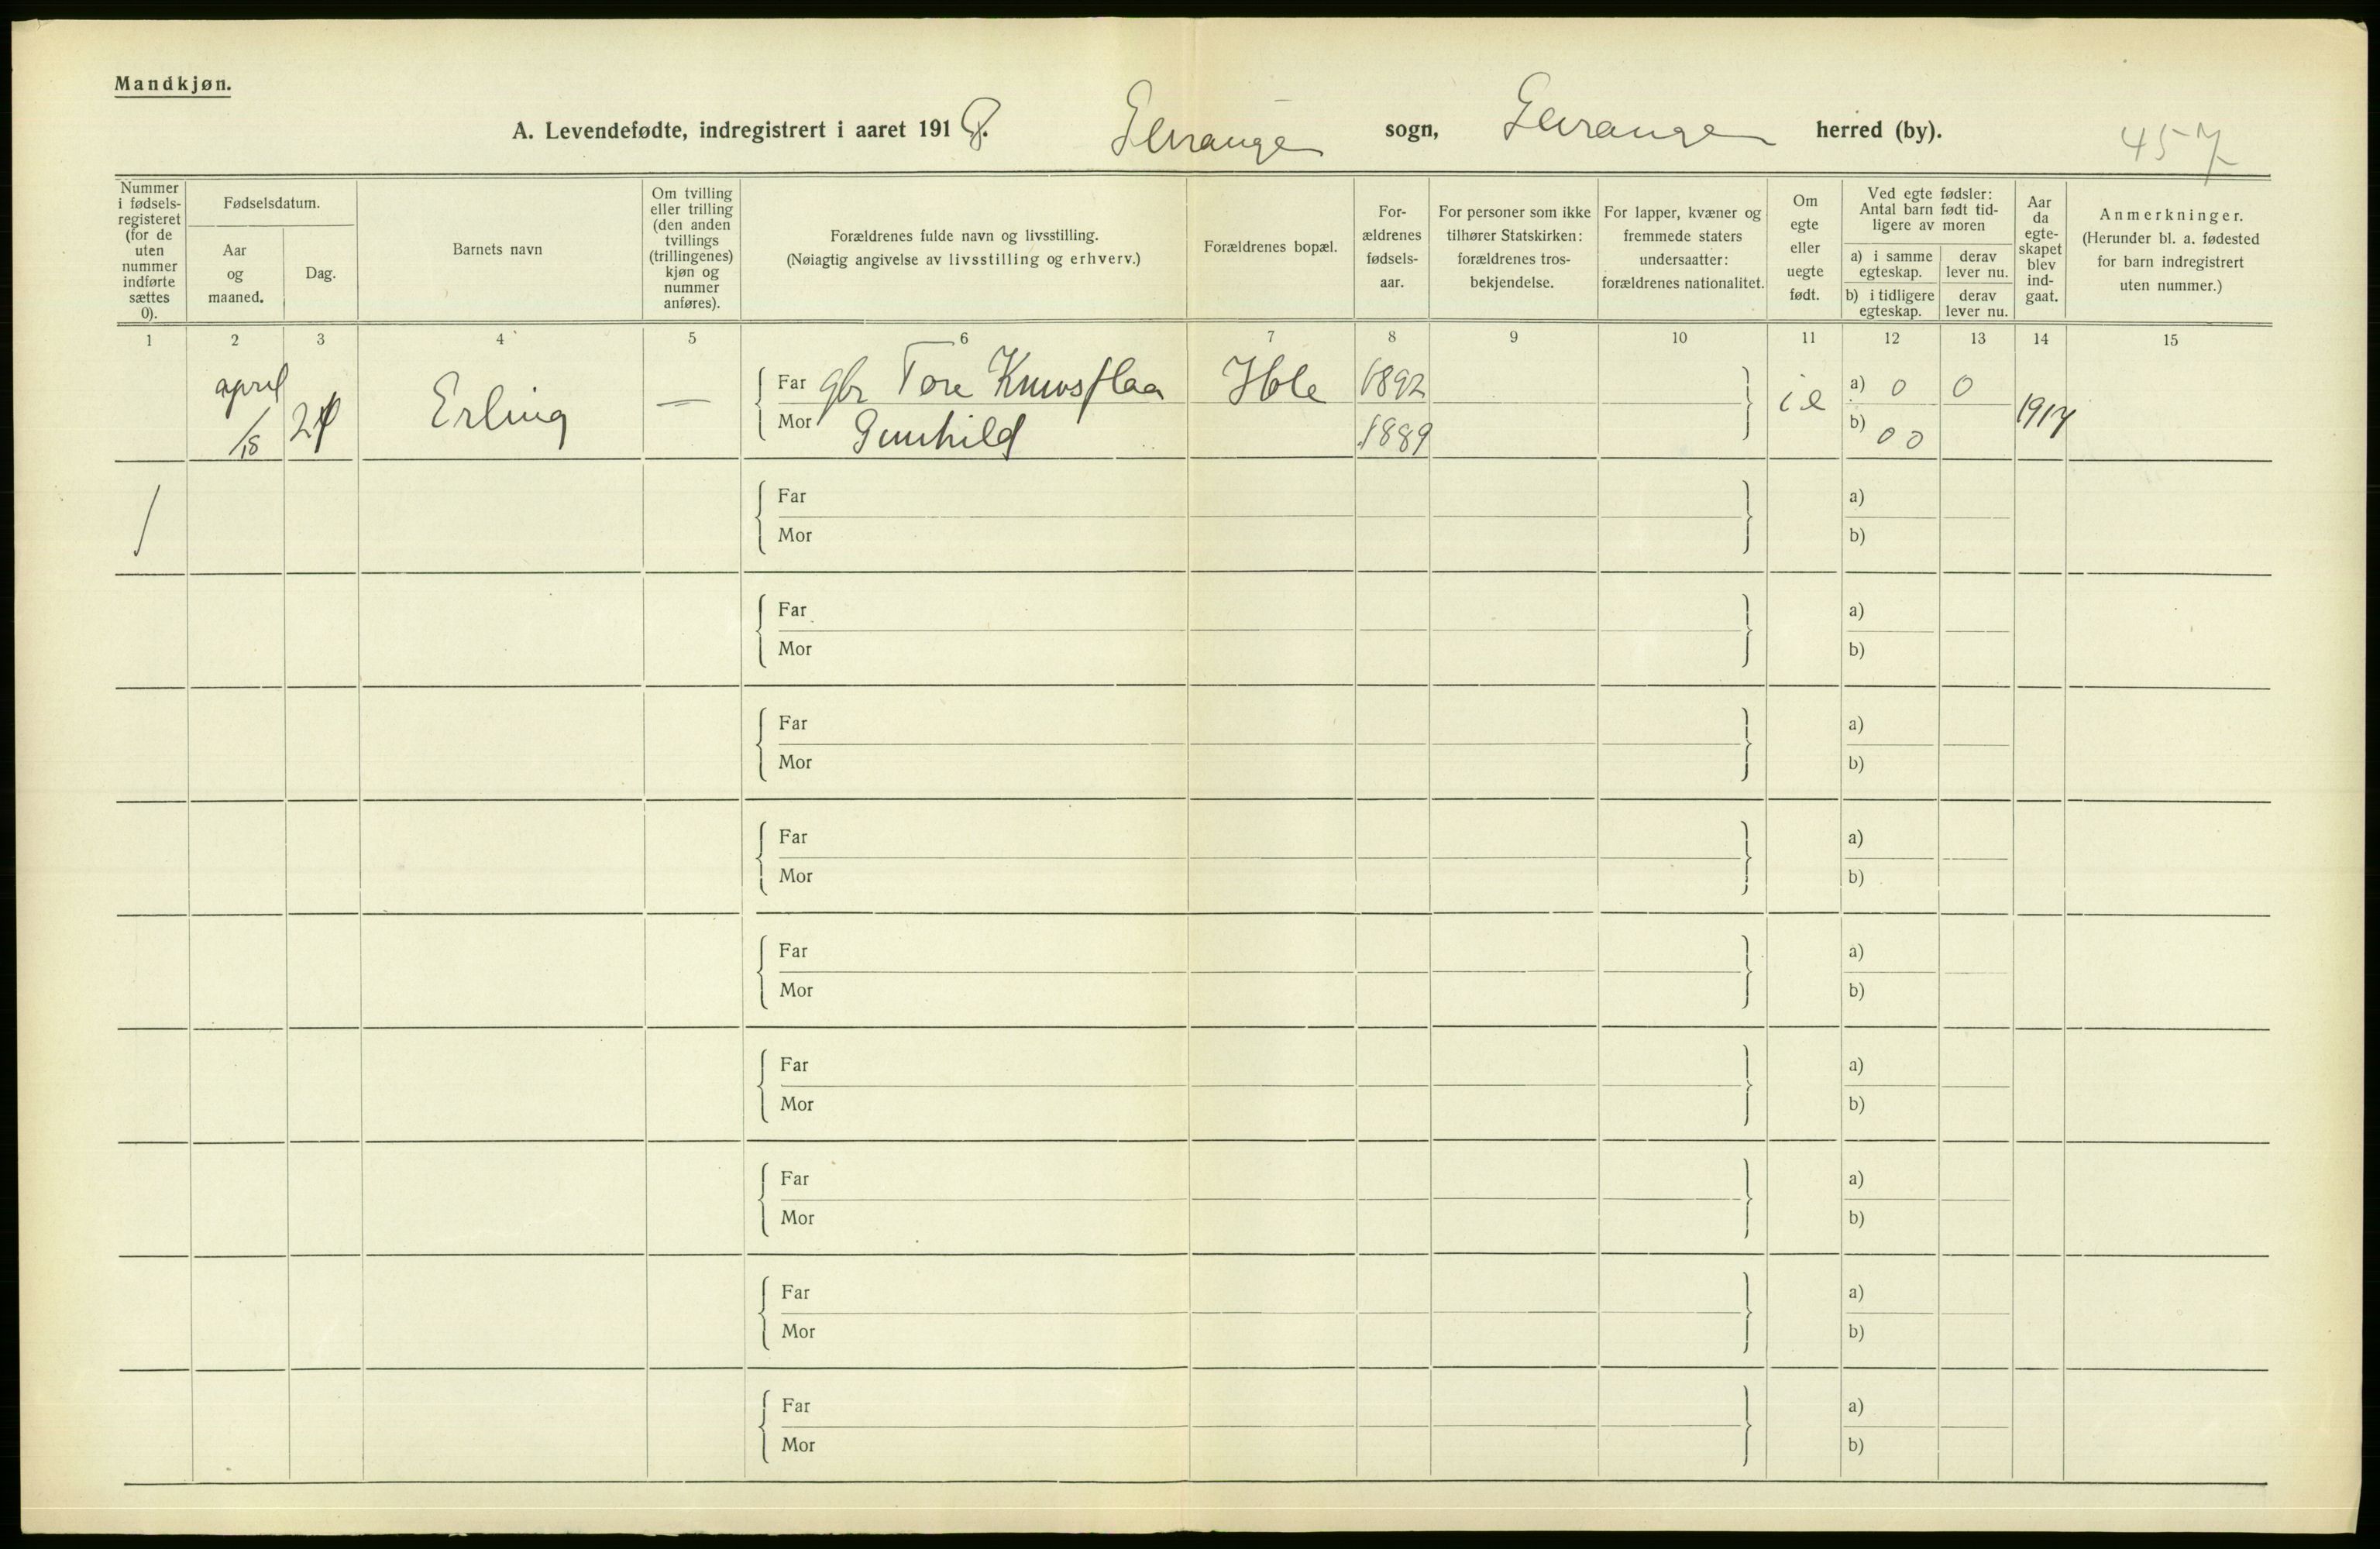 Mandkjøn.
A. Levendefødte, indregistrert i aaret 1918. sogn, herred (by).
457
Nummer i fødsels-registeret (for de uten nummer indførte sættes 0).
Fødselsdatum.
Aar og maaned.
Dag.
Barnets navn
Om tvilling eller trilling (den anden tvillings (trillingenes) kjøn og nummer anføres).
Forældrenes fulde navn og livsstilling.
(Nøiagtig angivelse av livsstilling og erhverv.)
Forældrenes bopæl.
For-ældrenes fødsels-aar.
For personer som ikke tilhører Statskirken: forældrenes tros-bekjendelse.
For lapper, kvæner og fremmede staters undersaatter: forældrenes nationalitet.
Om egte eller uegte født.
Ved egte fødsler: Antal barn født tid-ligere av moren
a) i samme egteskap.
derav lever nu.
b) i tidligere egteskap.
derav lever nu.
Aar da egte-skapet blev ind-gaat.
Anmerkninger.
(Herunder bl. a. fødested for barn indregistrert uten nummer.)
1 2 3 4 5 6 7 8 9 10 11 12 13 14 15
april 18 Erling — Far gbr Tore Hole 1892 a) 0 0
Mor Gunhild 1889 b) 0 0 1917
1
Far a)
Mor b)
Far a)
Mor b)
Far a)
Mor b)
Far a)
Mor b)
Far a)
Mor b)
Far a)
Mor b)
Far a)
Mor b)
Far a)
Mor b)
Far a)
Mor b)